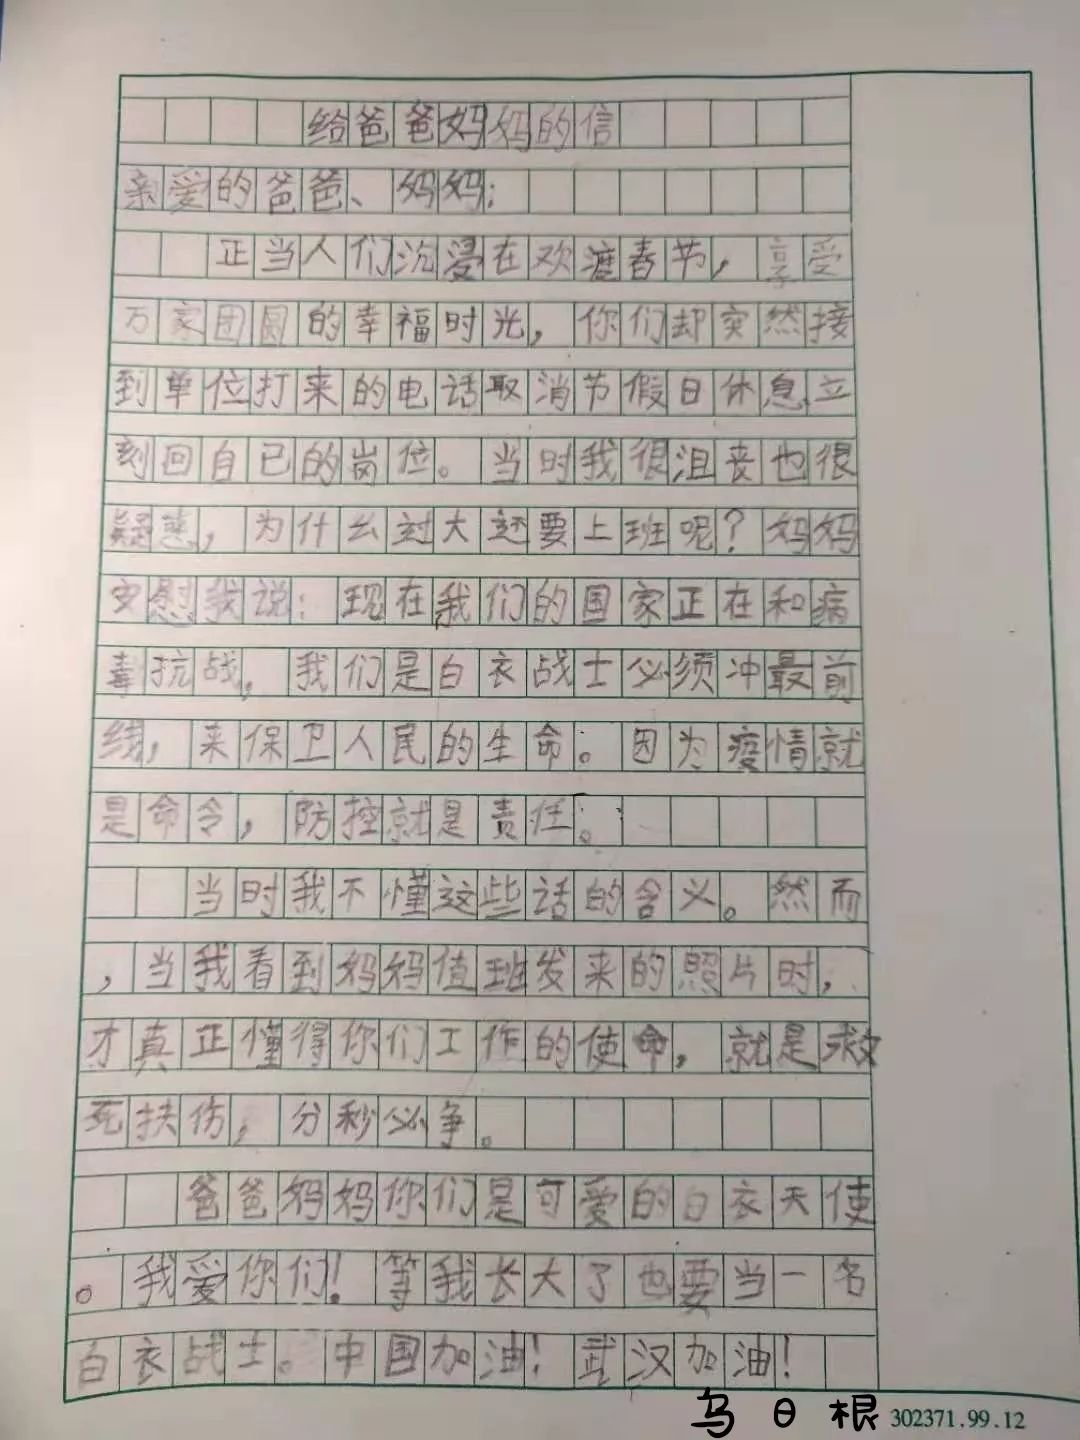 给爸爸妈妈的信
亲爱的爸爸、妈妈:
正当人们沉浸在欢渡春节,享受
万家团圆的幸福时光,你们却突然接
到单位打来的电话取消节假日休息立
刻回自己的岗位。当时我很沮丧也很
疑惑,为什么过大还要上班呢?妈妈
安慰我说:现在我们的国家正在和病
毒抗战,我们是白衣战士必须冲最前
线,来保卫人民的生命。因为疫情就
是命令,防控就是责任。
当时我不懂这些话的含义。然而
,当我看到妈妈值班发来的照片时,
才真正懂得你们工作的使命,就是救
死扶伤,分秒必争。
爸爸妈妈你们是可爱的白衣天使
。我爱你们!等我长大了也要当一名
白衣战士。中国加油!武汉加油!
乌日根 302371.99.12